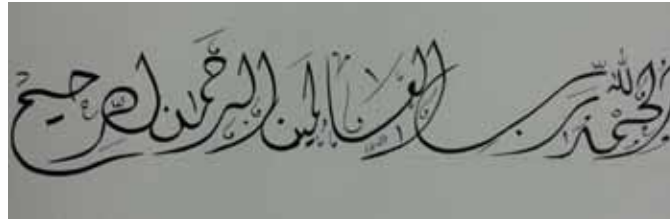 الحمد لله رب العالمين الرحمن الرحيم